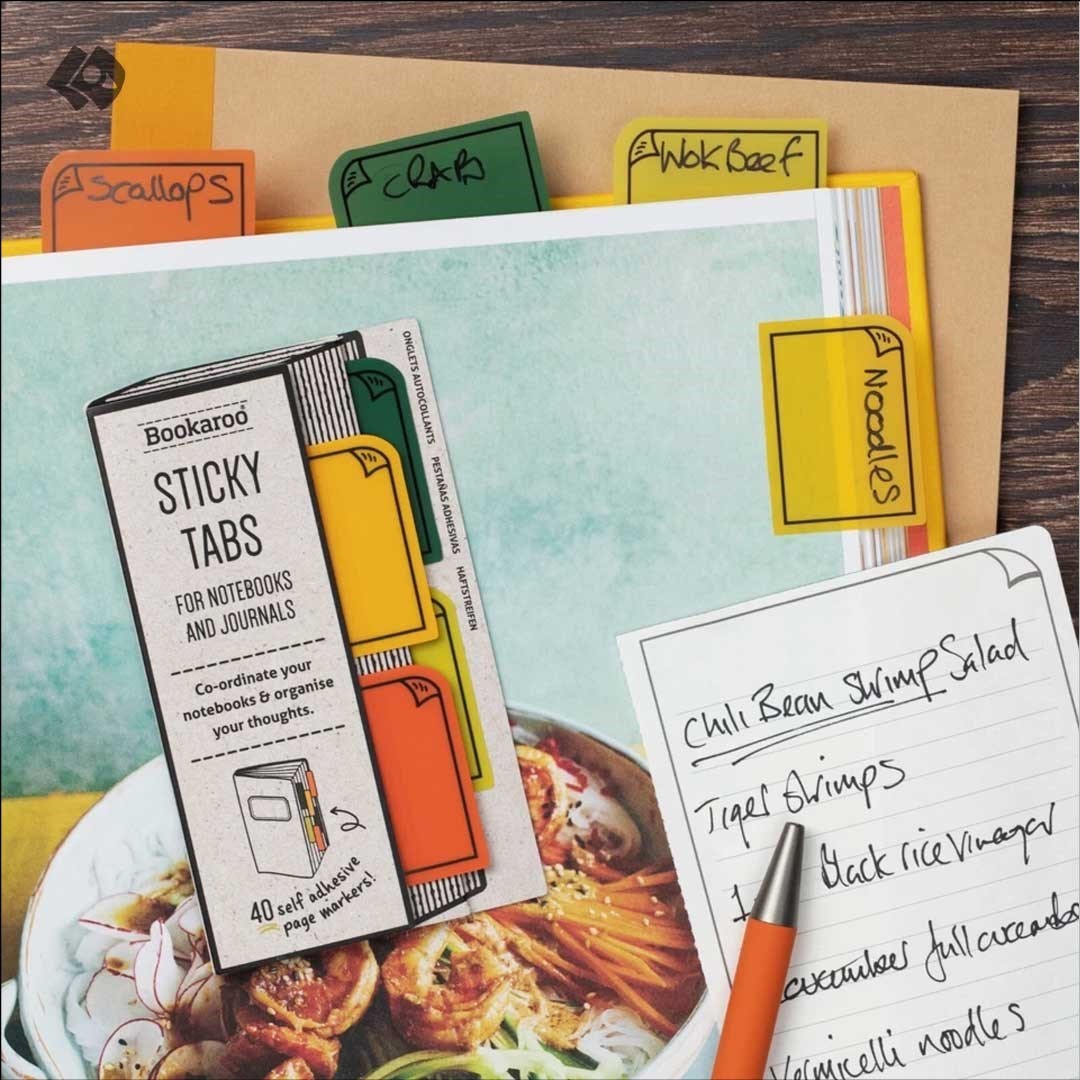 scallops
CRAB
Wok Beef
Noodles
ONGLETS AUTOCOLLANTS PESTAÑAS ADHESIVAS HAFTSTREIFEN
Bookaroo
STICKY
TABS
FOR NOTEBOOKS
AND JOURNALS
Co-ordinate your
notebooks & organise
your thoughts.
40 self adhesive
page markers!
Chili Bean Shrimp Salad
Tiger Shrimps
1 black rice vinegar
cucumber full
Vermicelli noodles